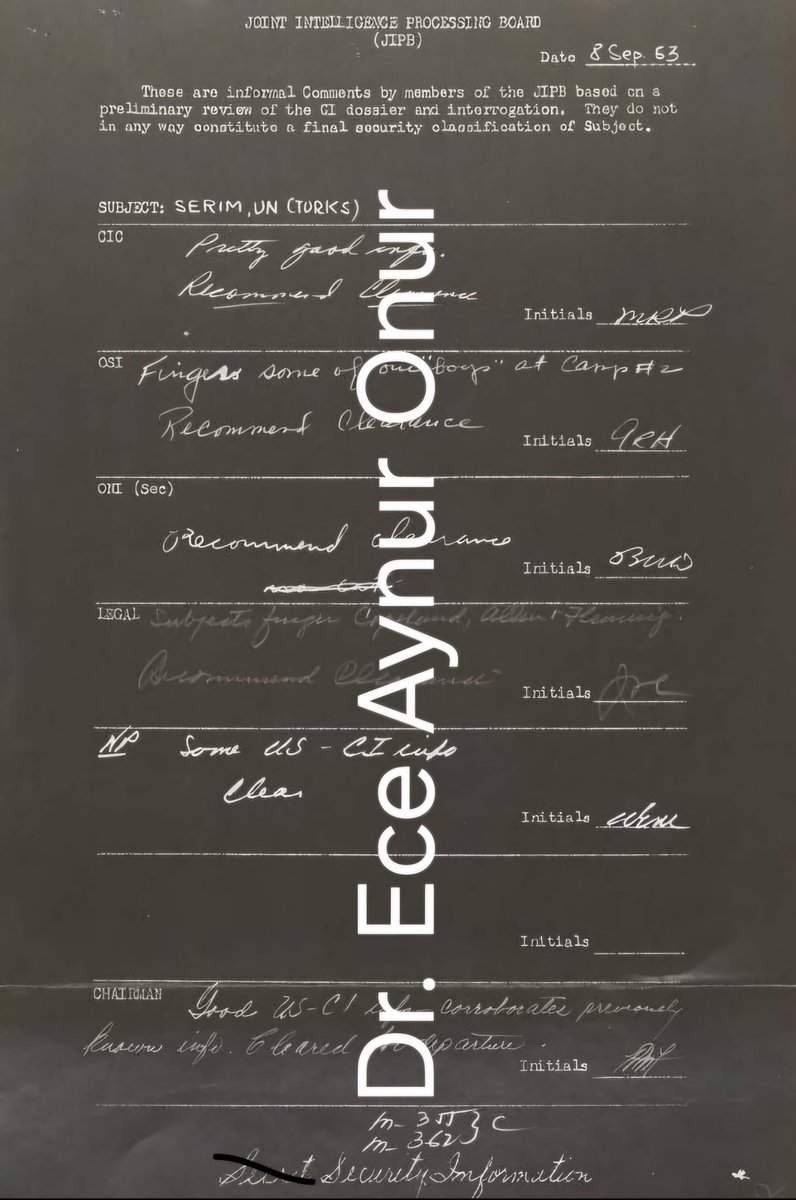 JOINT INTELLIGENCE PROCESSING BOARD
(JIPB)
Date 8 Sep. 53
These are informal Comments by members of the JIPB based on a
preliminary review of the CI dossier and interrogation. They do not
in any way constitute a final security classification of Subject.
SUBJECT: SERIM, UN (TURKS)
CIC
Pretty good info.
Recommend Clearance
Initials MRP
OSI Fingers some of our "boys" at Camp #2
Recommend Clearance
Initials GRH
ONI (Sec)
Recommend clearance
Initials
LEGAL Subjects finger Copeland, & Fleming.
Recommend Clearance
Initials
NP Some US - CI info
Clear
Initials
Initials
CHAIRMAN Good US-CI info corroborates previously
known info. Cleared for departure.
Initials
M-355 } C
M-362
Secret Security Information
Dr. Ece Aynur Onur